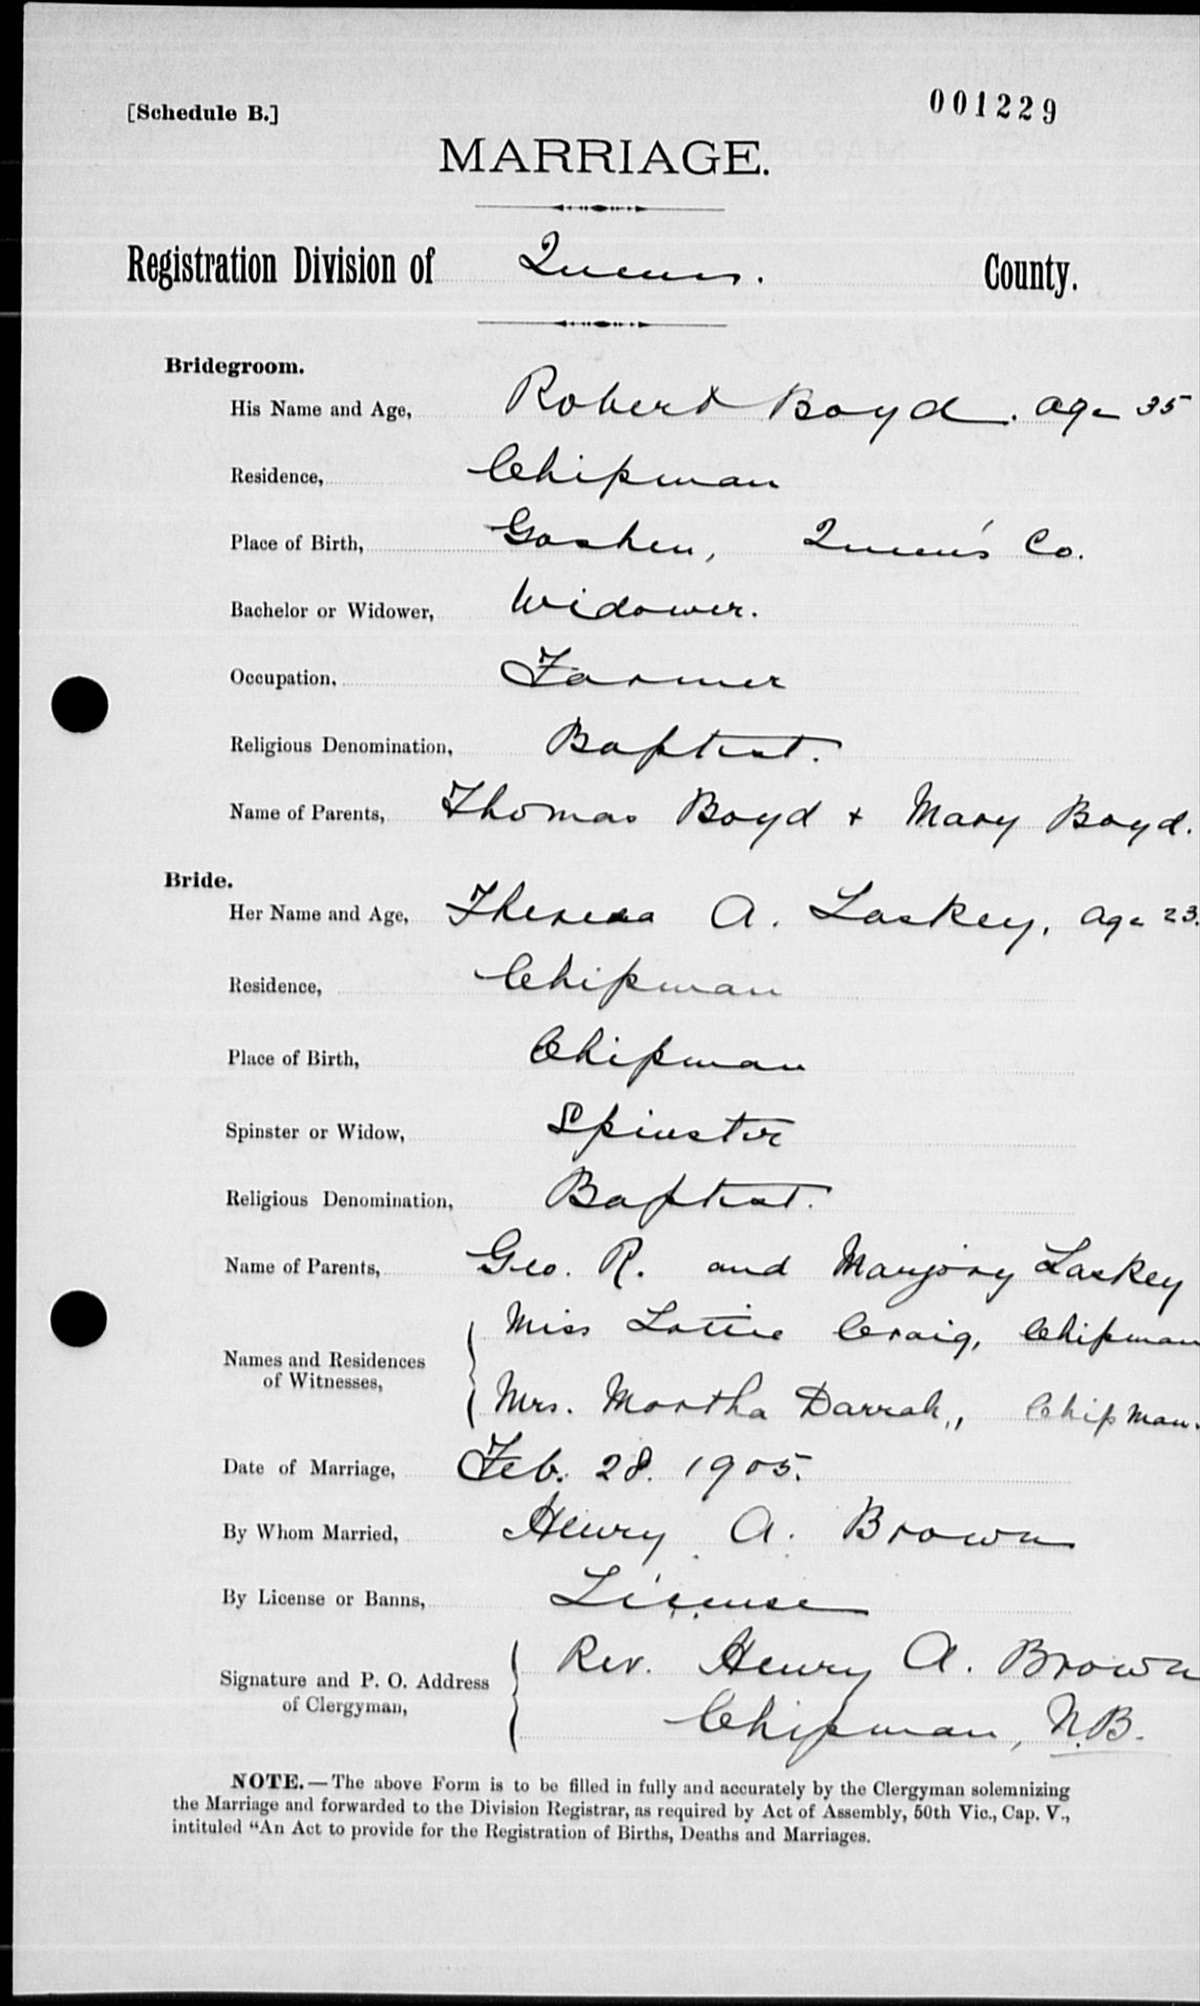 [Schedule B.]
001229
MARRIAGE.
Registration Division of Queens. County.
Bridegroom.
His Name and Age, Robert Boyd. age 35
Residence, Chipman
Place of Birth, Goshen, Queen's Co.
Bachelor or Widower, Widower.
Occupation, Farmer
Religious Denomination, Baptist.
Name of Parents, Thomas Boyd + Mary Boyd.
Bride.
Her Name and Age, Theresa A. Laskey, age 23.
Residence, Chipman
Place of Birth, Chipman
Spinster or Widow, Spinster
Religious Denomination, Baptist.
Name of Parents, Geo. R. and Marjory Laskey
Miss Lottie Craig, Chipman
Names and Residences
of Witnesses,
Mrs. Martha Darrah, Chipman.
Date of Marriage, Feb. 28. 1905.
By Whom Married, Henry A. Brown
By License or Banns, License
Rev. Henry A. Brown
Signature and P. O. Address
of Clergyman,
Chipman, N.B.
NOTE.—The above Form is to be filled in fully and accurately by the Clergyman solemnizing
the Marriage and forwarded to the Division Registrar, as required by Act of Assembly, 50th Vic., Cap. V.,
intituled “An Act to provide for the Registration of Births, Deaths and Marriages.